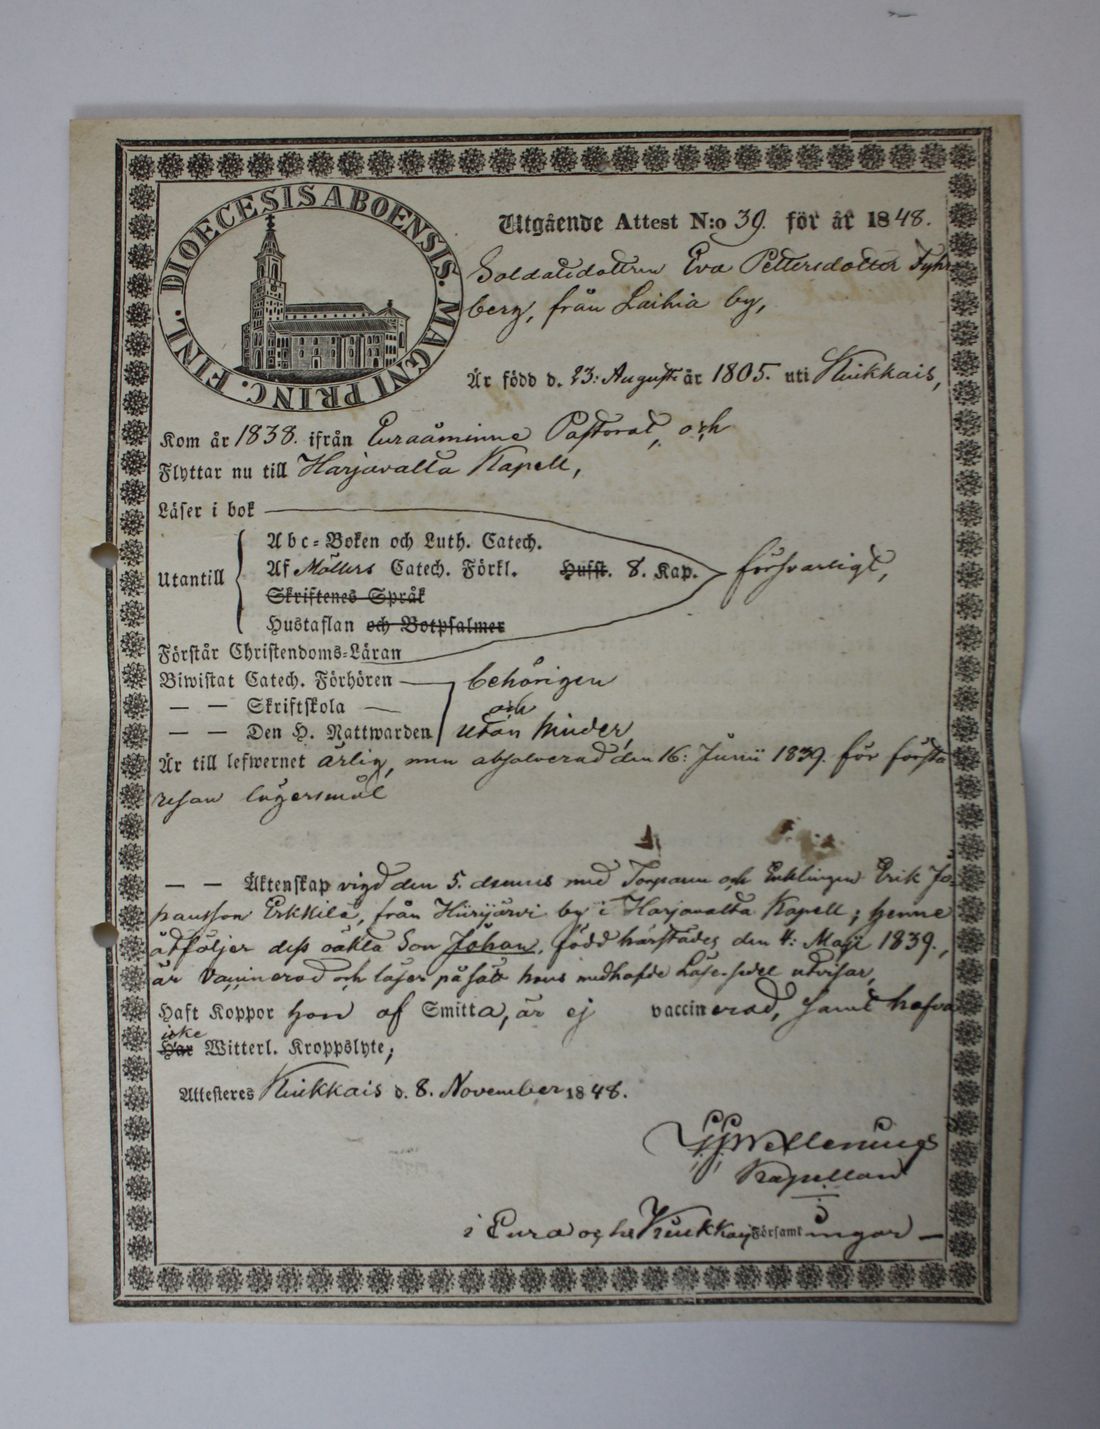 DIOECESIS ABOENSIS. MAGNI PRINC. FINL.
Utgående Attest N:o 39. för år 1848.
Soldatsdottren Eva Pettersdotter Fyhr
berg, från Laihia by,
Är född d. 23: August år 1805. uti Kiukkais,
Kom år 1838. ifrån Euraåminne Pastorat, och
Flyttar nu till Harjavalta Kapell,
Läser i bok
Abc-Boken och Luth. Catech.
Utantill Af Möllers Catech. Förkl. Husfl. 8. Kap. försvarligt,
Skriftenes Språk
Hustaflan och Botpsalmer
Förstår Christendoms-Läran
Biwistat Catech. Förhören behörigen
— — Skriftskola och
— — Den H. Nattwarden utan hinder,
Är till lefwernet ärlig, men absolverad den 16: Junii 1839. för första
resan lägersmål
— — Äktenskap vigd den 5. dennes med Torparen och Enklingen Erik Jo-
hansson Erkkilä, från Hiirijärvi by i Harjavalta Kapell; henne
åtföljer dess oäkta Son Johan, född härstädes den 4: Maji 1839.,
är Vaccinerad och läser på sätt hans medhafde Läse-sedel utvisar,
Haft Koppor hon af Smitta, är ej vaccinerad, samt hafva
icke
Har Witterl. Kroppslyte;
Attesteres Kiukkais d. 8. November 1848.
Kapellan
i Eura och Kiukkais Församlingar —